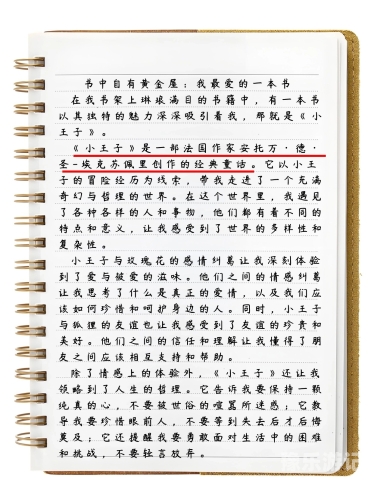 书中自有黄金屋：我最爱的一本书
在我书架上琳琅满目的书籍中，有一本书
以其独特的魅力深深吸引着我，那就是《小
王子》。
《小王子》是一部法国作家安托万·德·
圣-埃克苏佩里创作的经典童话。它以小王
子的冒险经历为线索，带我走进了一个充满
奇幻与哲理的世界。在这个世界里，我遇见
了各种各样的人和事物，他们都有着不同的
特点和意义，让我感受到了世界的多样性和
复杂性。
小王子与玫瑰花的感情纠葛让我深刻体验
到了爱与被爱的滋味。他们之间的情感纠葛
让我思考了什么是真正的爱情，以及我们应
该如何珍惜和呵护身边的人。同时，小王子
与狐狸的友谊也让我感受到了友谊的珍贵和
美好。他们之间的信任和理解让我懂得了朋
友之间应该相互支持和帮助。
除了情感上的体验外，《小王子》还让我
领略到了人生的哲理。它告诉我要保持一颗
纯真的心，不要被世俗的喧嚣所迷惑；它教
导我要珍惜眼前人，不要等到失去后才后悔
莫及；它还提醒我要勇敢面对生活中的困难
和挑战，不要轻言放弃。